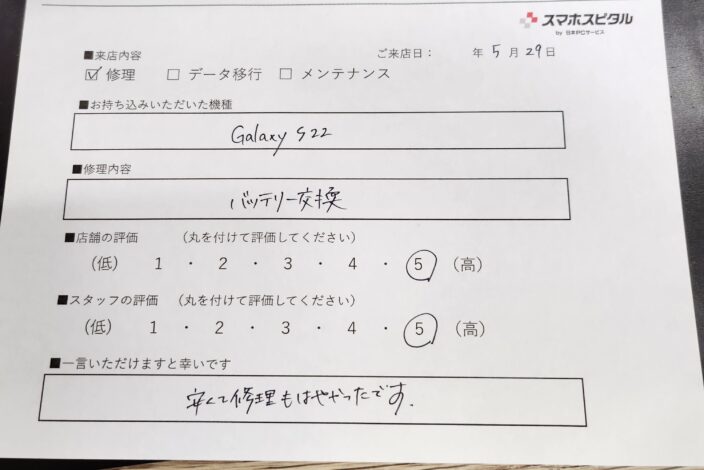 スマホスピタル
by 日本PCサービス
■来店内容
ご来店日： 年 5 月 29 日
☑ 修理 □ データ移行 □ メンテナンス
■お持ち込みいただいた機種
Galaxy S22
■修理内容
バッテリー交換
■店舗の評価 （丸を付けて評価してください）
（低） 1 ・ 2 ・ 3 ・ 4 ・ 5 （高）
■スタッフの評価 （丸を付けて評価してください）
（低） 1 ・ 2 ・ 3 ・ 4 ・ 5 （高）
■一言いただけますと幸いです
安くて修理もはやかったです.